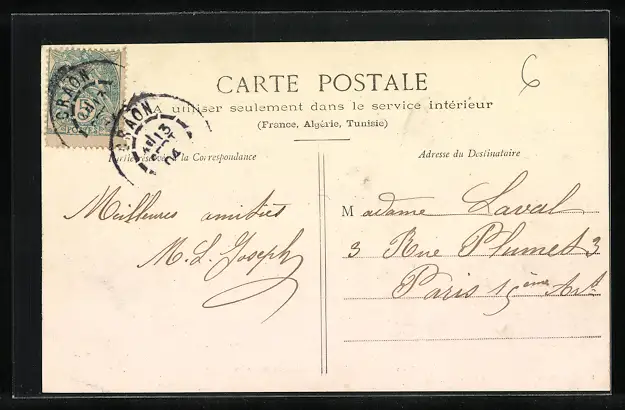 CARTE POSTALE
A utiliser seulement dans le service intérieur
(France, Algérie, Tunisie)
6
CRAON
CRAON
13
04
Partie réservée à la Correspondance
Meilleures amitiés
M. L. Joseph
Adresse du Destinataire
Madame Laval
3 Rue Plumet 3
Paris 15ème Art